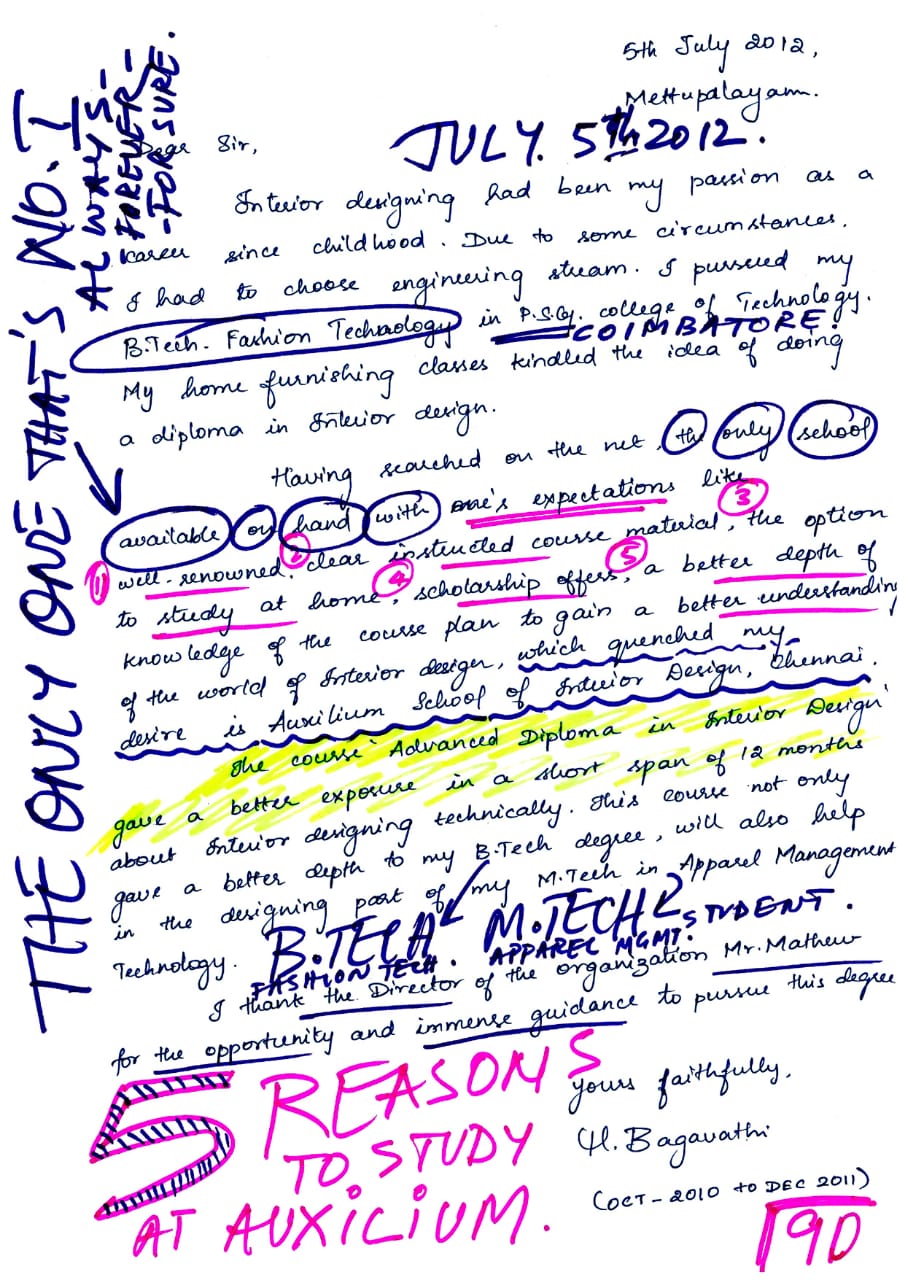 5th July 2012,
Mettupalayam.
JULY. 5th 2012.
Dear Sir,
Interior designing had been my passion as a
career since childhood. Due to some circumstances,
I had to choose engineering stream. I pursued my
B.Tech. Fashion Technology in P.S.G. college of Technology.
COIMBATORE.
My home furnishing classes kindled the idea of doing
a diploma in Interior design.
Having searched on the net, the only school
available on hand with one's expectations like
① well-renowned, ② clear instructed course material, ③ the option
to study at home, ④ scholarship offers, ⑤ a better depth of
knowledge of the course plan to gain a better understanding
of the world of Interior design, which quenched my
desire is Auxilium School of Interior Design, Chennai.
The course Advanced Diploma in Interior Design
gave a better exposure in a short span of 12 months
about Interior designing technically. This course not only
gave a better depth to my B.Tech degree, will also help
in the designing part of my M.Tech in Apparel Management
Technology.
B.TECH FASHION TECH.
M.TECH APPAREL MGMT. STUDENT.
I thank the Director of the organization Mr. Mathew
for the opportunity and immense guidance to pursue this degree
Yours faithfully,
H. Bagavathi
(OCT-2010 to DEC 2011)
5 REASONS
TO STUDY
AT AUXILIUM.
90
THE ONLY ONE THAT'S NO. 1
ALWAYS-
FOREVER-
-FOR SURE.